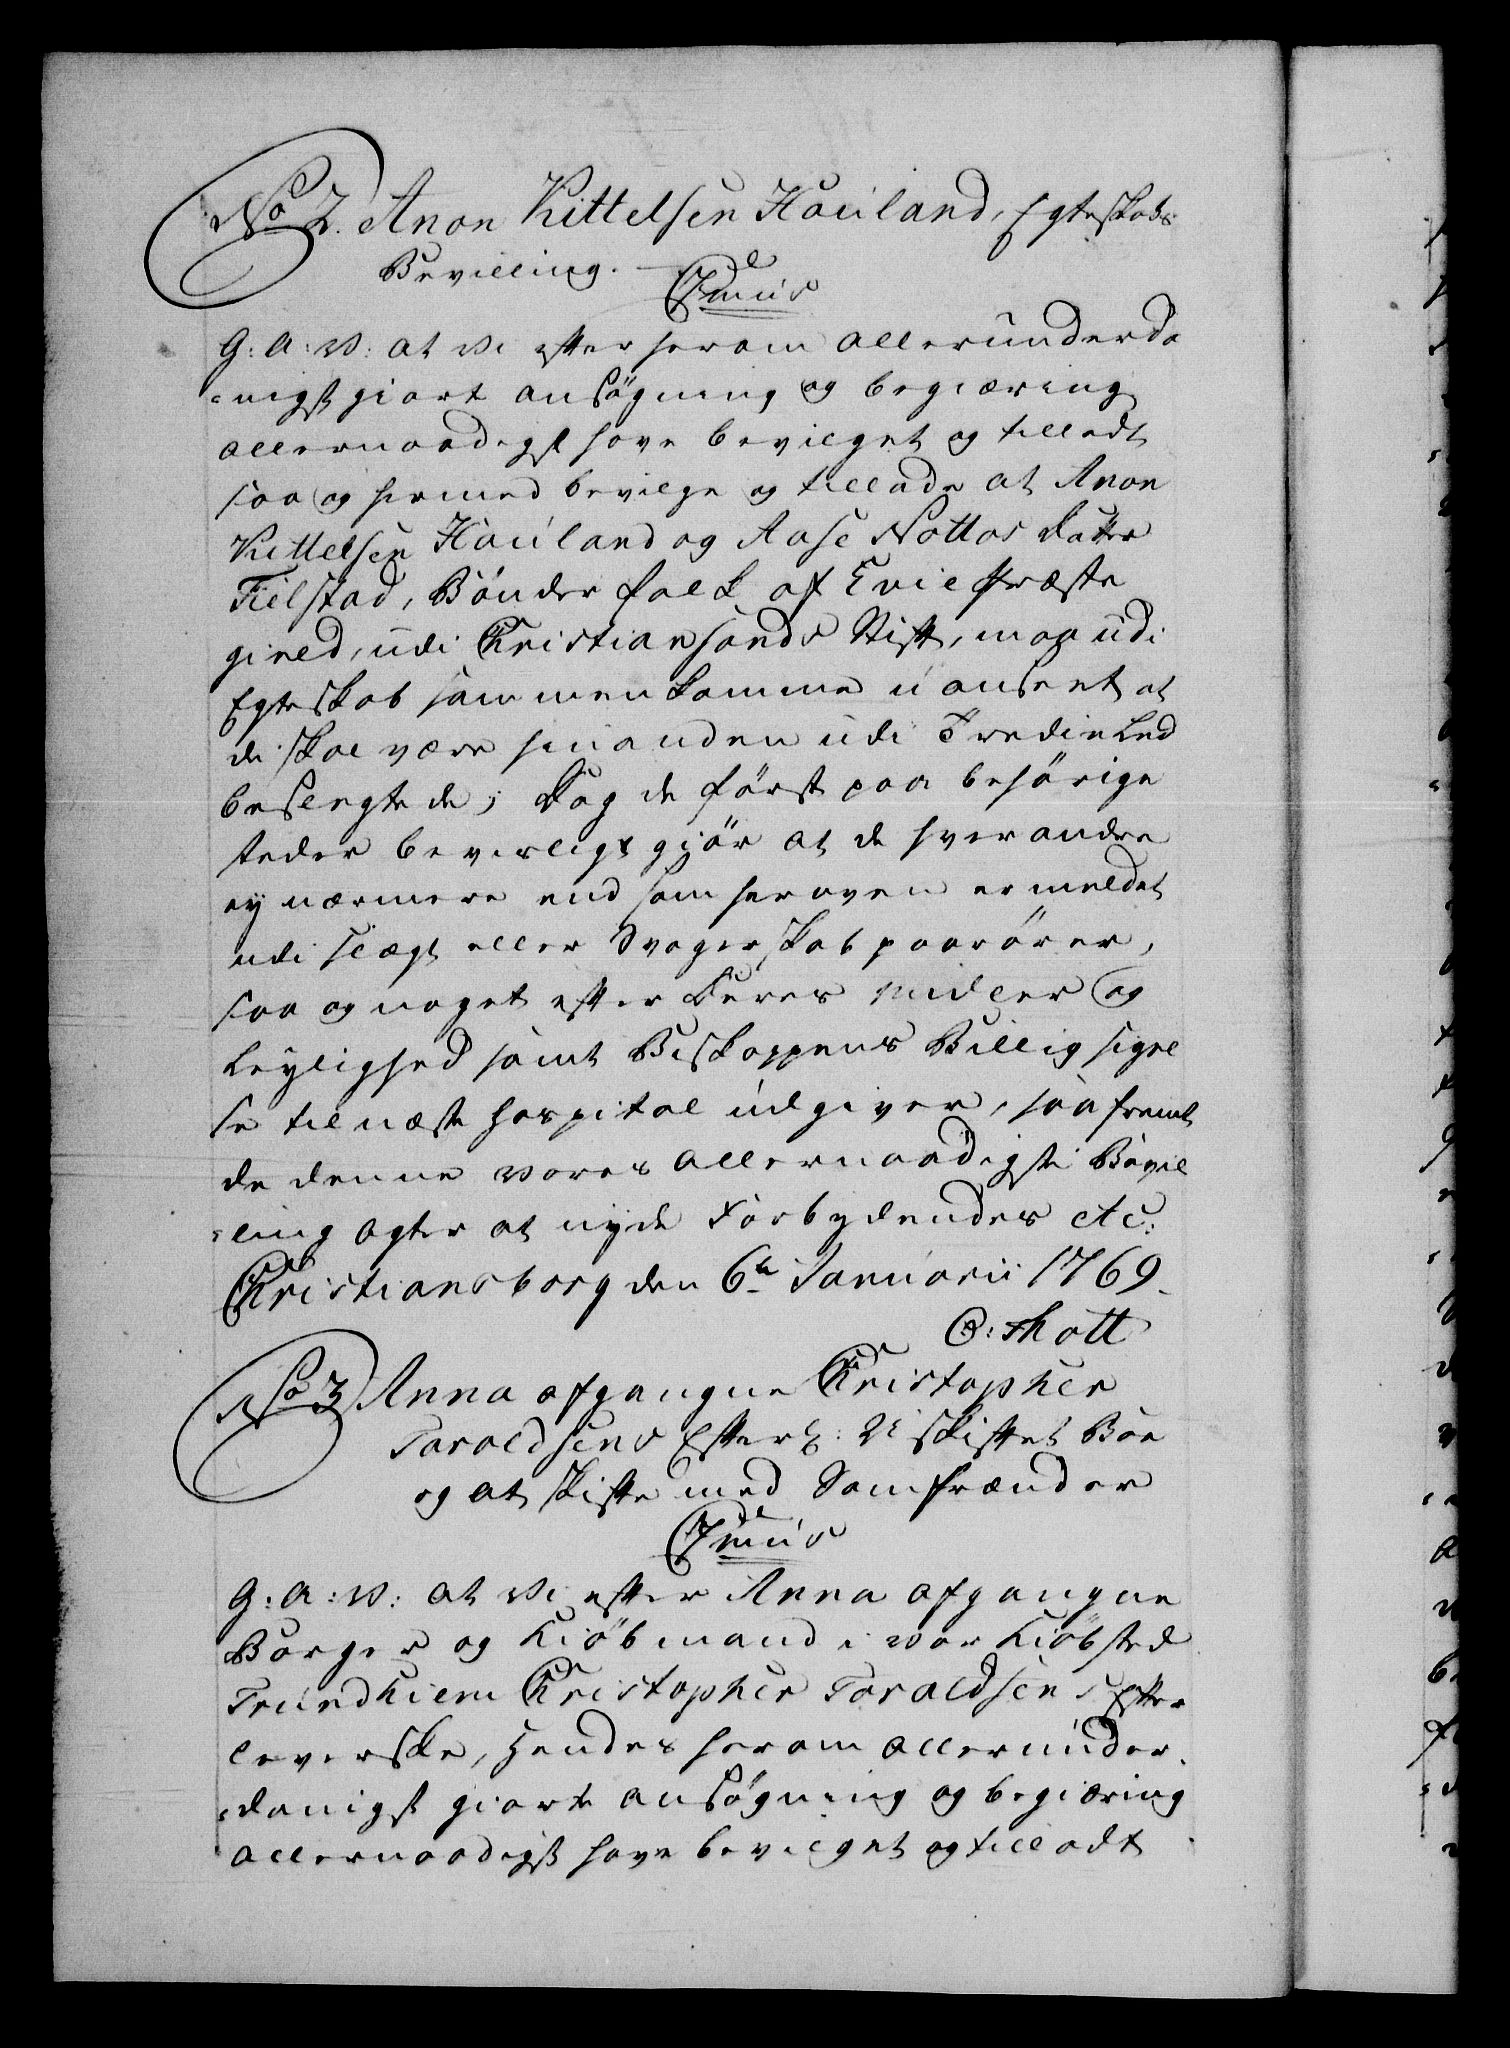 No 2. Anon Kittelsen Hauland, Egteskabs
Bevilling.
C7mus
G: A: W: at Vi efter herom allerunderda
nigst giort ansögning og begiæring
allernaadigst have bevilget og tilladt
saa og hermed bevilge og tillade at Anon
Kittelsen Hauland og Aase Nottos datter
Fielstad, Bönder folk af Evie Præste
gield, udi Christiansands Stift, maa udi
Egteskab sammenkomme uanseet at
de skal være hinanden udi Tredie Led
beslegtede; Dog de först paa behörige
steder beviisligt gjör at de hverandre
ey nærmere end som heroven er meldet
udi Slægt eller Svogerskab paarörer,
saa og noget efter Deres Midler og
Leylighed samt Biskoppens Billig sigel
se til næste hospital udgiver, saa fremt
de denne Vores allernaadigste Bevil
ling agter at nyde Forbydendes etc:
Christiansborg den 6te Januarii 1769.
O: Thott
No 3 Anna afgangne Christopher
Taraldsens Efterl: Uskiftet Boe
og at skifte med Samfrænder
C7mus
G: A: W: at Vi efter Anna afgangne
Borger og Kiöbmand i vor Kiöbsted
Trundhiem Christopher Taraldsens Efter
leverske, Hendes herom allerunder
danigst giorte ansögning og begiæring
allernaadigst have bevilget og tilladt